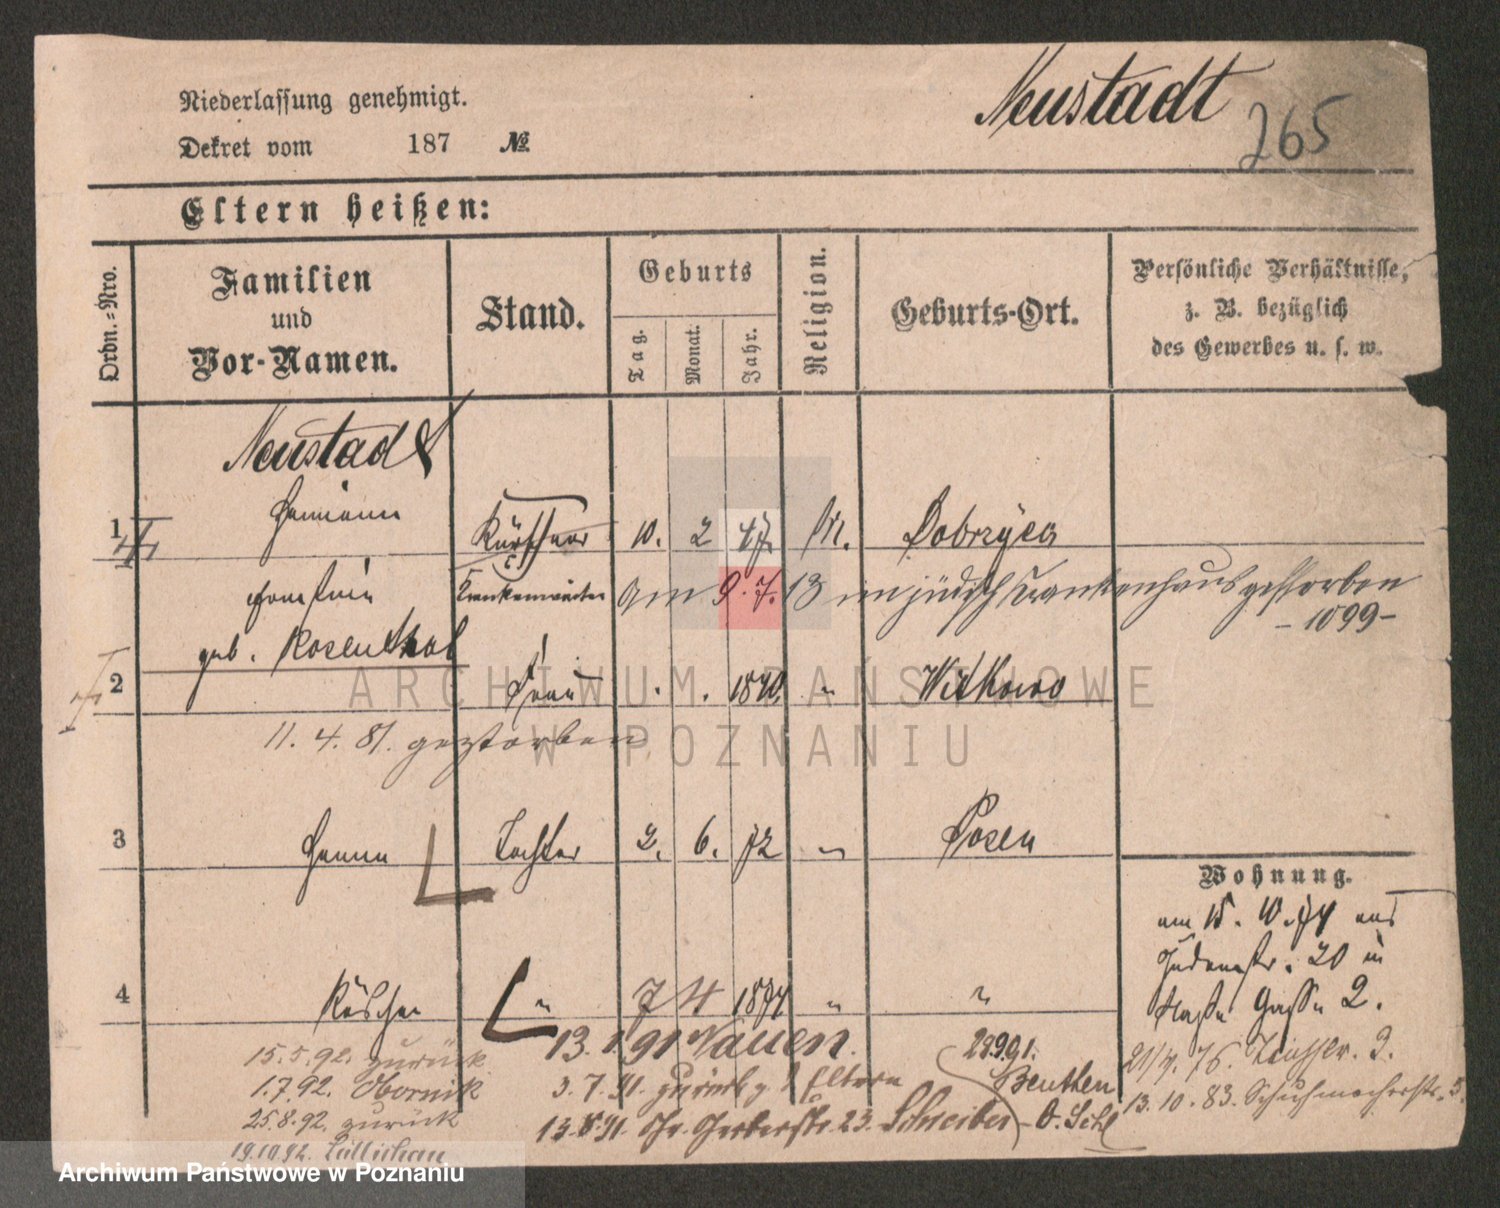 Niederlassung genehmigt.
Neustadt
265
Dekret vom 187 №
Eltern heißen:
Ordn.-Nro.
Familien
und
Vor-Namen.
Stand.
Geburts
Tag.
Monat.
Jahr.
Religion.
Geburts-Ort.
Persönliche Verhältnisse,
z. B. bezüglich
des Gewerbes u. s. w.
Neustadt
1 Hermann Kürschner 10. 2 47. M. Dobrzyca
Krankenwärter am 9.7.13 im jüdisch Krankenhaus gestorben
-1099-
geb. Rosenthal
2 Frau 1840. " Witkowo
11. 4. 81. gestorben
3 Hanna Tochter 2. 6. 72 " Posen
4 " 7 4 1874 " "
Wohnung.
am 15. 10. 74 aus
Judenstr. 20 in
Gasse 2.
21/4. 76. 2.
13. 10. 83. Schuhmacherstr. 3.
13. 1 91 Nauen.
3. 7. 91. zurück z. d Eltern
13. 8. 91. Gerberstr. 23. Schreiber
28.9.91.
Beuthen
O. Schl
15. 5. 92. zurück
1. 7. 92. Obornik
25. 8. 92. zurück
19.10.92. Züllichau
ARCHIWUM PAŃSTWOWE
W POZNANIU
Archiwum Państwowe w Poznaniu